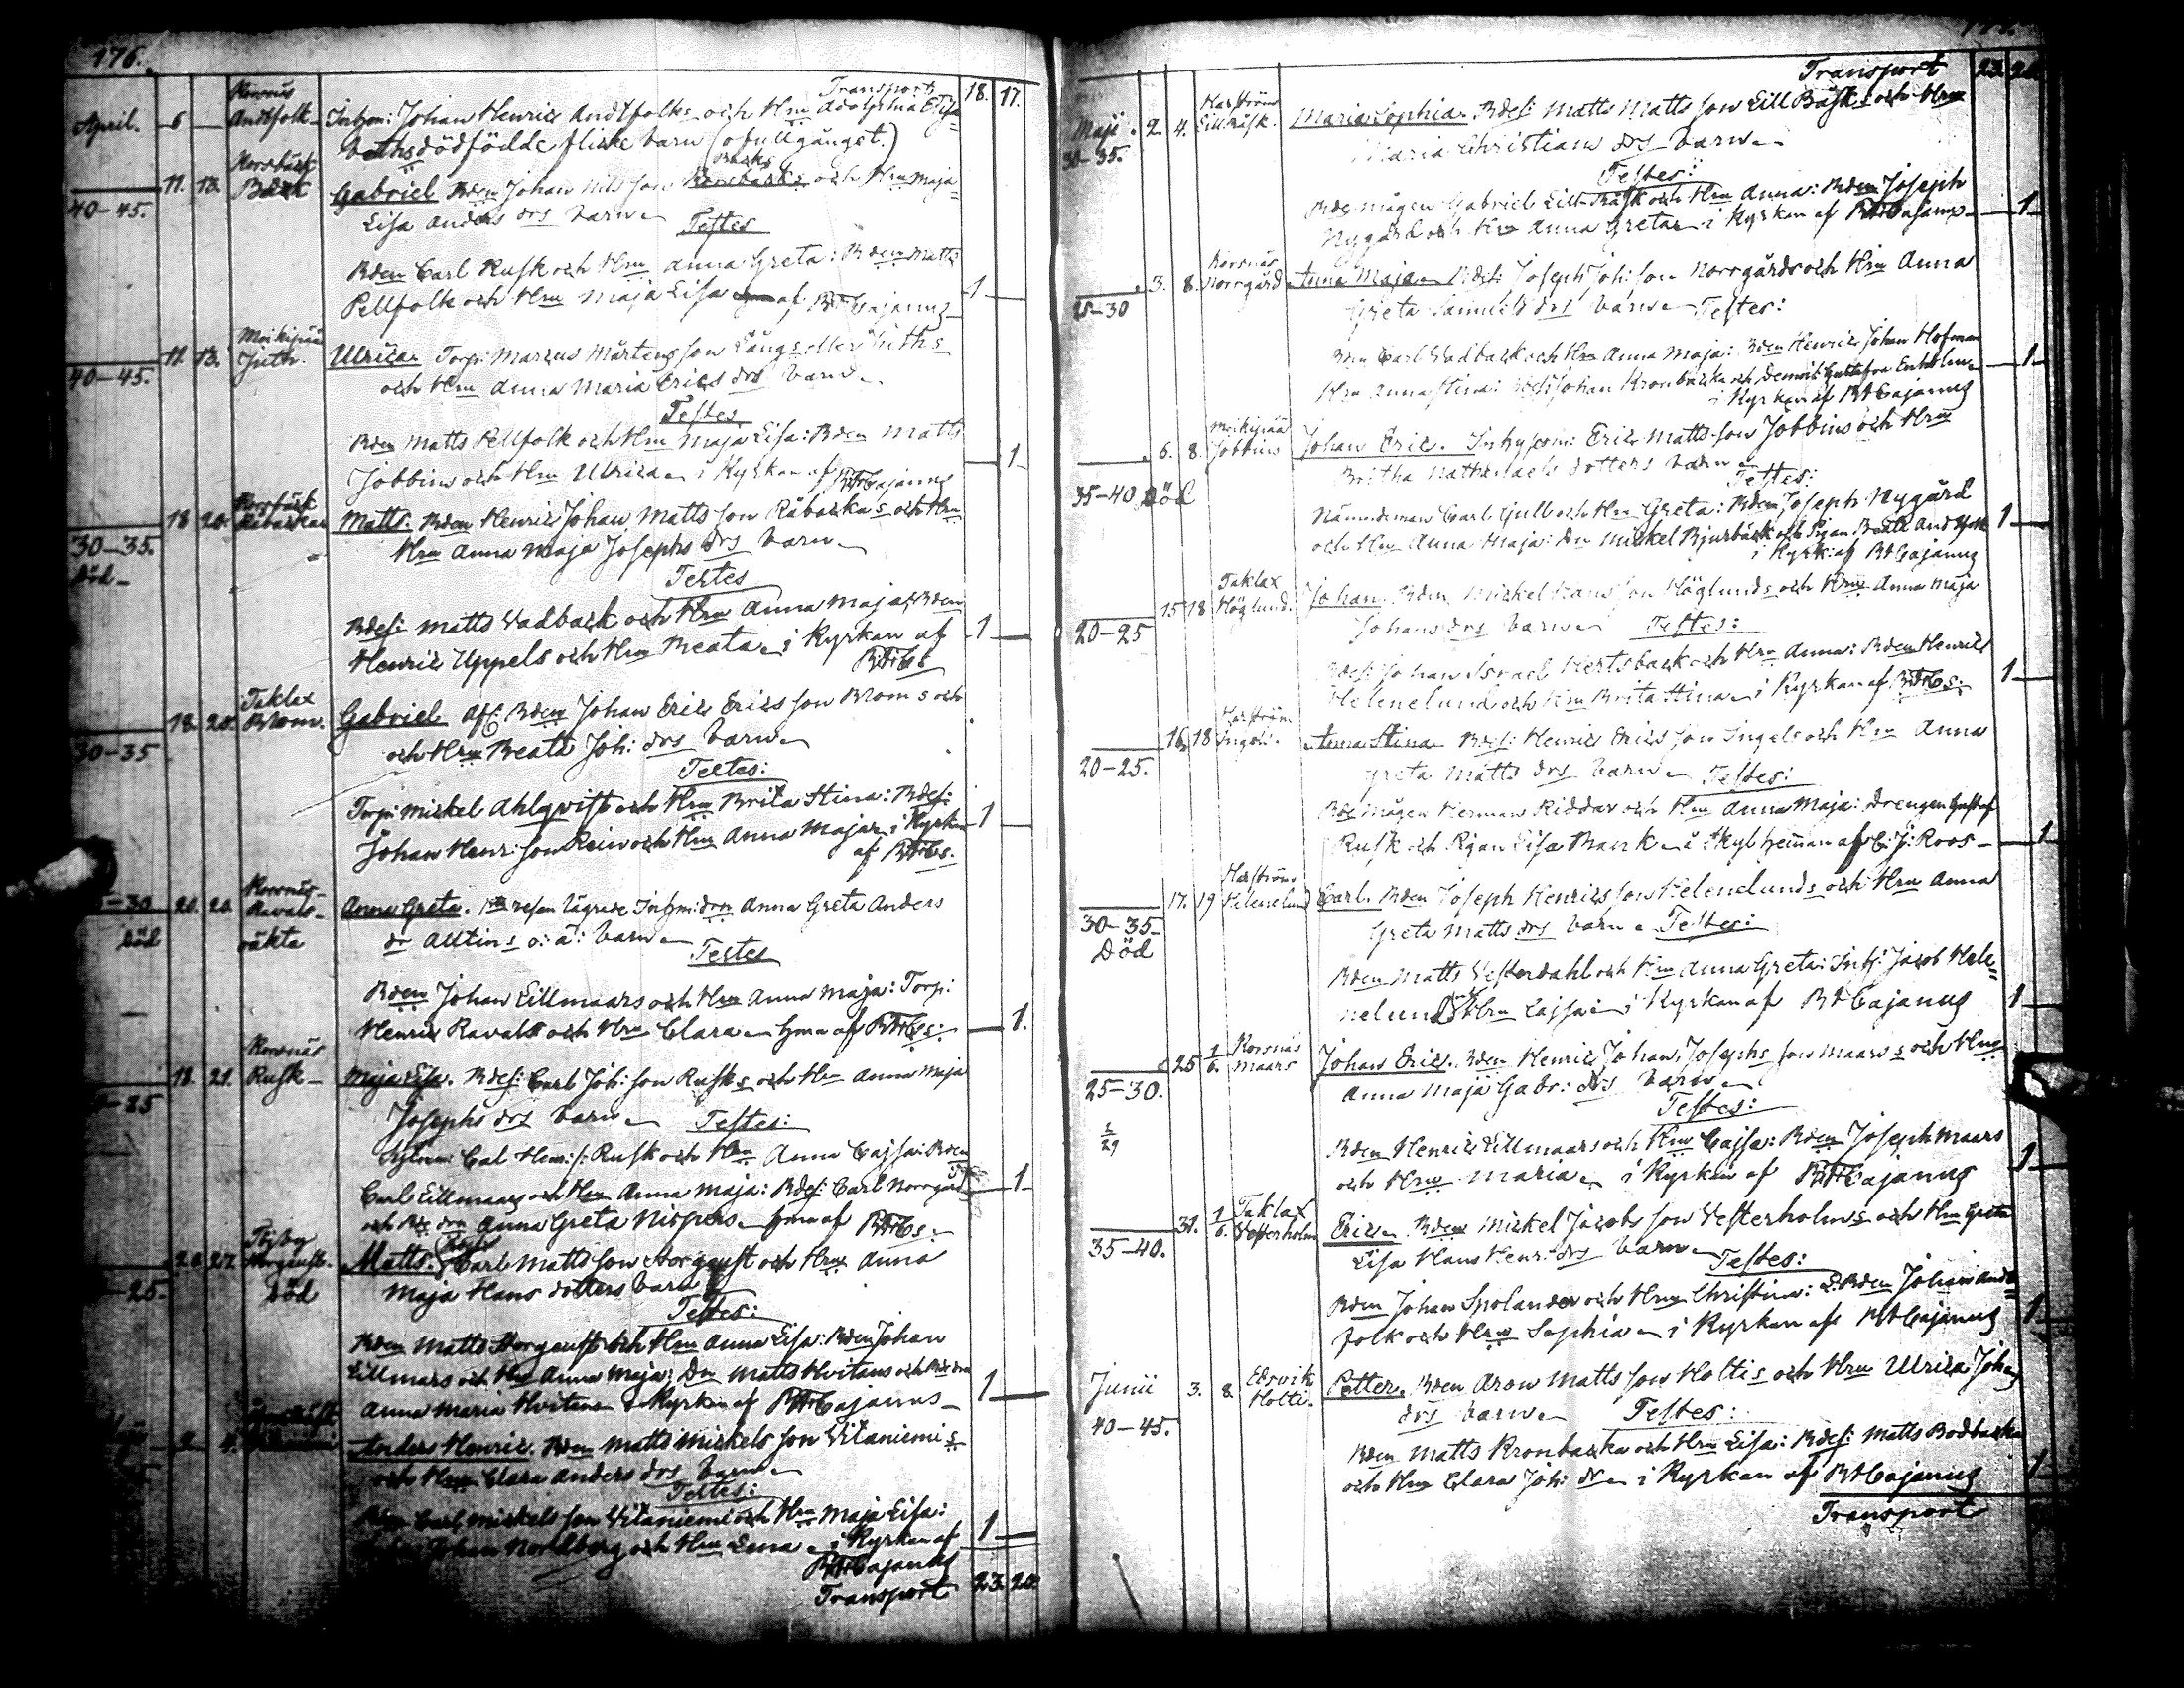 176.
Transport 18. 17.
April. 6 — Korsnäs Andtfolk — Inhm: Johan Henric Andtfolks och Hru Adolphina Elisa-
beths dödfödde flicke barn (ofullgånget.)
11. 13. Korsbäck Back Gabriel Bden Johan Nils son Backs och Hru Maja
40-45. Lisa Anders drs barn
Testes
Bden Carl Rusk och Hru Anna Greta: Bden Matts
Pellfolk och Hru Maja Lisa af BHCajanus 1
11. 13. Moikipää Juth. Ulrica Torp: Marcus Mårtens son Långs eller Juths
40-45. och Hru Anna Maria Erics drs barn
Testes
Bden Matts Pellfolk och Hru Maja Lisa: Bden Matts
Jobbins och Hru Ulrica i Kyrkan af BHCajanus 1
18 20. Korsbäck Råbackas Matts. Bden Henric Johan Matts son Råbackas och Hru
30-35. Död Hru Anna Maja Josephs drs barn
Testes
Bdes: Matts Vadback och Hru Anna Maja: Bden
Henric Uppels och Hru Beata i Kyrkan af 1
BHCs
18. 20. Taklax Blom. Gabriel Afs: Bden Johan Eric Erics son Bloms och
30-35 och Hru Beata Joh: drs barn
Testes:
Torp: Mickel Ahlqvist och Hru Brita Stina: Bdes:
Johan Henr: son Rein och Hru Anna Maja i Kyrkan 1
af BHCs.
20. 20. Korsnäs Ravals Anna Greta. resan lägrade Inhm: drn Anna Greta Anders
Död oäkta dr Alltins o: ä: barn
Testes
Bden Johan Lillmaars och Hru Anna Maja: Torp:
Henric Ravals och Hru Clara hma af BHCs: 1.
18. 21. Korsnäs Rusk Maja Lisa. Bdes: Carl Joh: son Rusks och Hru Anna Maja
25 Josephs drs barn Testes:
Cal Henr: s: Rusk och Hru Anna Cajsa: Bden
Carl Lillmaars och Hru Anna Maja: Bdes: Carl Norrgård 1
och Bde drn Anna Greta Nispers hma af BHCs.
27. Död Matts. Carl Matts son Storgeust och Hru Anna
25. Maja Hans dotters barn
Testes:
Bden Matts Storgeust och Hru Anna Lisa: Bden Johan
Lillmars och Hru Anna Maja: Dr Matts Hvitans och
Anna Maria Hvitans i Kyrkan af BHCajanus 1
Anders Henric. Bden Matts Mickels son Vitaniemis
och Hru Clara Anders drs barn
Testes:
Carl Mickels son Vitaniemi och Hru Maja Lisa:
Johan Nordberg och Hru Lena i Kyrkan af 1
BHCajanus
Transport 23. 20.
Transport 23. 20
Maji 2. 4. Harström Lillbåsk. Maria Sophia. Bdes: Matts Matts son Lill Båsks och Hru
30-35. Maria Christians drs barn
Testes:
Bde mågen Gabriel Lill Båsk och Hru Anna: Bden Joseph
Nygård och Hru Anna Greta i Kyrkan af BHCajanus 1
3. 8. Korsnäs Norrgård Anna Maja Bdes: Joseph Joh: son Norrgårds och Hru Anna
25-30 Greta Samuels drs barn Testes:
Bden Carl Vadback och Hru Anna Maja: Bden Henric Johan Hofman
Hru Anna Stina: Bdes: Johan Kronbacka och Demois: Gustafva Enholm 1
i Kyrkan af BHCajanus
6. 8. Moikipää Jobbins Johan Eric. Inhysom: Eric Matts son Jobbins och Hru
35-40 Död Britha Nathanaels dotters barn
Testes:
Nämndeman Carl Gull och Hru Greta: Bden Joseph Nygård
och Hru Anna Maja: Dr Mickel Bjurbäck och Pigan Andtfolk 1
i Kyrk: af BHCajanus
15 18 Taklax Höglund. Johan. Bden Mickel Hans son Höglunds och Hru Anna Maja
20-25 Johans drs barn Testes:
Bdes: Johan Israel Hertsback och Hru Anna: Bden Henric
Helenelund och Hru Brita Stina i Kyrkan af BHCs: 1
16 18 Harström Ingels. Anna Stina Bdes: Henric Erics son Ingels och Hru Anna
20-25. Greta Matts drs barn Testes:
Bde mågen Herman Riddar och Hru Anna Maja: Drengen Gustaf
Rusk och Pigan Lisa Back af C: J: Roos 1
17. 19 Harström Helenelund Carl. Bden Joseph Henrics son Helenelunds och Hru Anna
30-35 Död Greta Matts drs barn Testes:
Bden Matts Vesterdahl och Hru Anna Greta: Inhs: Jacob Hele-
nelund Hru Cajsa i Kyrkan af BHCajanus 1
25 1/6. Korsnäs Maars Johan Eric. Bden Henric Johan Josephs son Maars och Hru
25-30. Anna Maja Gabr: drs barn
Testes:
Bden Henric Lillmaars och Hru Cajsa: Bden Joseph Maars
och Hru Maria i Kyrkan af BHCajanus 1
31. 1/6. Taklax Vesterholm Eric Bden Mickel Jacobs son Vesterholms och Hru Greta
35-40. Lisa Hans Henr: drs barn
Testes:
Bden Johan Spolander och Hru Christina: L: Bden Johan Andt-
folk och Hru Sophia i Kyrkan af BHCajanus 1
Junii 3. 8. Edsvik Holti. Petter. Bden Aron Matts son Holtis och Hru Ulrica Johans
40-45. drs barn Testes:
Bden Matts Kronbacka och Hru Lisa: Bdes: Matts Bodbacka
och Hru Clara Joh: dr i Kyrkan af BHCajanus 1
Transport